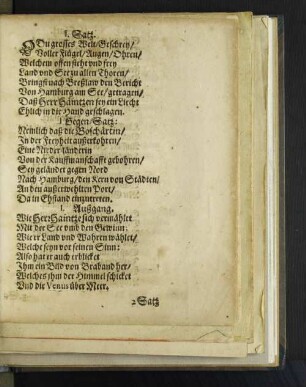 1. Satz.
O Du grosses Welt/Geschrey/
Voller Flügel/ Augen/ Ohren/
Welchem offen steht und frey
Land und See zu allen Thoren/
Bringst nach Breßlaw den Bericht
Von Hamburg am See/ getragen/
Daß Herr Haintzen sey ein Liecht
Ehlich in die Hand geschlagen.
1 Gegen/Satz:
Nemlich daß die Boschärtin/
In der Freyheit außerkohren/
Eine Niederländerin
Von der Kauffmanschafft gebohren/
Sey geländet gegen Nord
Nach Hamburg/ den Kern von Städten/
An den außerwehlten Port/
Da in Ehstand einzutreten.
1. Außgang.
Wie Herr Haintze sich vermählet
Mit der See und den Gewinn:
Wie er Land und Wahren wählet/
Welche seyn vor seinen Sinn:
Also hat er auch erblicket
Ihm ein Bild von Braband her/
Welches ihm der Himmel schicket
Und die Venus über Meer.
2 Satz